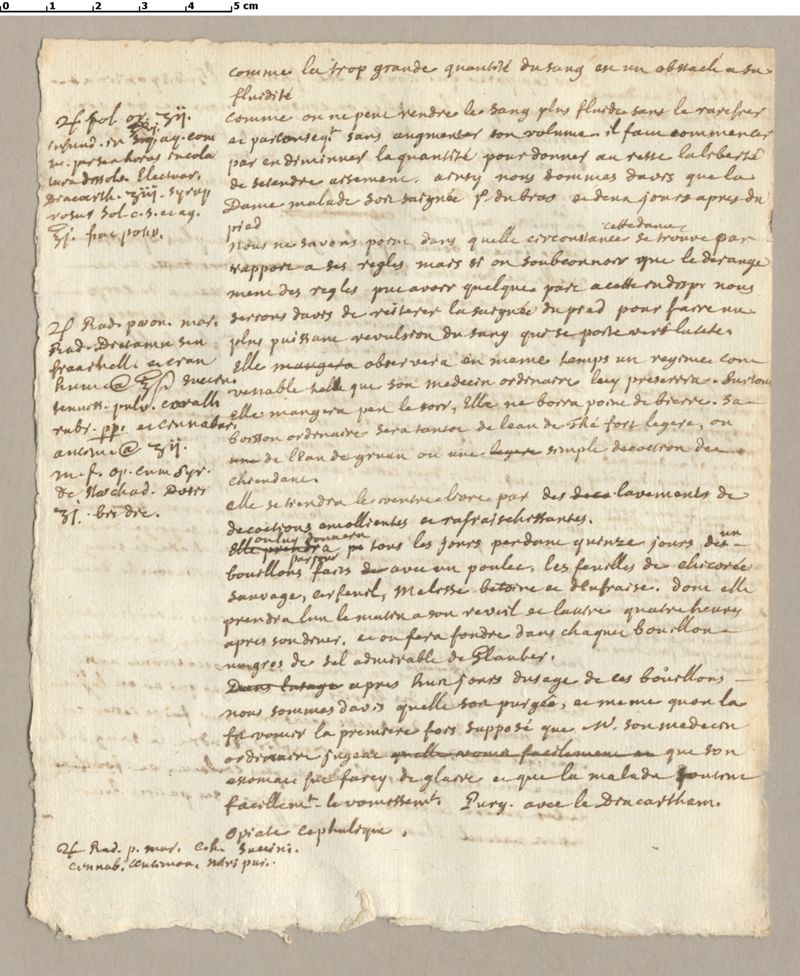 0 1 2 3 4 5 cm
comme la trop grande quantité du sang est un obstacle a sa
fluidité
comme on ne peut rendre le sang plus fluide sans le rarefier
et par conseqt sans augmenter son volume. il faut commencer
par en diminuer la quantité pour donner au reste la liberté
de setendre aisement. ainsy nous sommes davis que la
Dame malade soit saignée du bras et deux jours apres du
pied
Nous ne savons point dans quelle circonstance cette dame se trouve par
rapport a ses regles mais si on soubconnoit que le derange
ment des regles put avoir quelque part a cette indispo nous
serions davis de reiterer la saignée du pied pour faire une
plus puissante revulsion du sang qui se porte vers la tete.
Elle mangera observera en meme temps un regime con
venable tel que son medecin ordinaire luy prescrira. surtout
elle mangera peu le soir, Elle ne boira point de bierre. sa
boisson ordinaire sera tantot de leau de Thé fort legere, ou
de lEau de gruau ou une legere simple decoction de
chiendant.
elle se tiendra le ventre libre par des deco lavements de
decoctions emollientes et rafraischissantes.
on luy donnera
Elle prendra tous les jours pendant quinze jours un
bouillons faits avec un poulet, les feuilles de chicorée
sauvage, cerfeuil, Melisse betoine et dEufraise. dont elle
prendra lun le matin a son reveil et lautre quatre heures
apres son diner. et on fera fondre dans chaque bouillon
un gros de sel admirable de Glauber.
Dans lusage apres huit jours dusage de ces bouillons
nous sommes davis quelle soit purgée, et meme quon la
fit vomir la premiere fois supposé que Mr. son medecin
ordinaire jugeat quelle vomit facilement et que son
estomac fut farcy de glaire et que la malade soutint
facillemt. le vomissemt. Purg. avec le Diacartham.
Opiate cephalique.
fol or. ʒij.
infund. in aq. com
per horas in cola
tura dissolv. Electuar.
Diacarth. ʒiij. syrup
rosat sol. c. s. et aq.
fiat potio.
Rad. pœon. mar.
Rad. Dictamn
fraxinell. et cran
hum. @ succin.
pulv. corall
rubr. pp. et cinnabar.
antim @ ʒij.
m. f. op. cum syr.
de Stœchad. Dosis
ʒj. bis die.
Rad. p. mar. C. h. Succini.
cinnab. antimon. nitri pur.